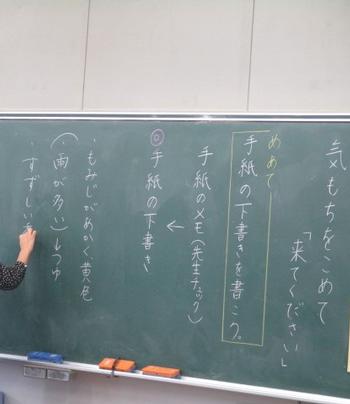 気もちをこめて
「来てください」
めあて
手紙の下書きを書こう。
手紙のメモ(先生チェック)
↓
◎手紙の下書き
・もみじがあかく黄色
(・雨が多い)↓つゆ
・すずしい